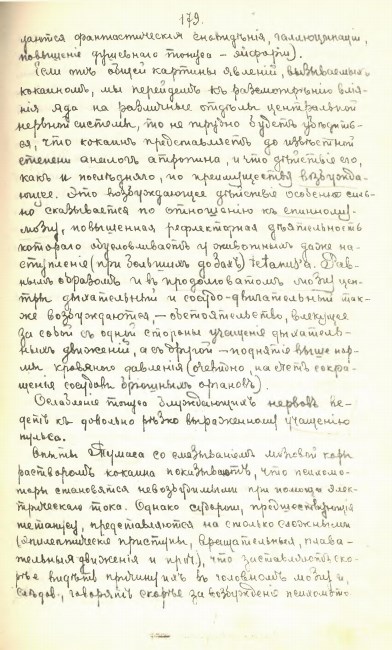 179.
чаются фантастическiя сновидѣнiя, галлюцинацiи,
повышенiе душевнаго тонуса - эйфорiи).
Если отъ общей картины явленiй, вызываемыхъ
кокаиномъ, мы перейдемъ къ разсмотрѣнiю влiя-
нiя яда на различные отдѣлы центральной
нервной системы, то не трудно будетъ убѣдить-
ся, что кокаинъ представляетъ до извѣстной
степени аналогъ атропина, и что дѣйствiе его,
какъ и послѣдняго, по преимуществу возбужда-
ющее. Это возбуждающее дѣйствiе особенно силь-
но сказывается по отношенiю къ спинному
мозгу, повышенная рефлекторная дѣятельность
котораго обусловливаетъ у животныхъ даже на-
ступленiе (при большихъ дозахъ) tetanus'а. Рав-
нымъ образомъ и въ продолговатомъ мозгу цен-
тры дыхательный и сосудо-двигательный так-
же возбуждаются, - обстоятельство, влекущее
за собой съ одной стороны учащенiе дыхатель-
ныхъ движенiй, а съ другой - поднятiе выше нор-
мы кровяного давленiя (очевидно, на счетъ сокра-
щенiя сосудовъ брюшныхъ органовъ).
Ослабленiе тонуса блуждающихъ нервовъ ве-
детъ къ довольно рѣзко выраженному учащенiю
пульса.
Опыты Тумаса со смазыванiемъ мозговой коры
растворомъ кокаина показываютъ, что психомо-
торы становятся невозбудимыми при помощи элек-
трическаго тока. Однако судороги, предшествующiя
тетанусу, представляются на столько сложными
(эпилептическiе приступы, вращательныя, плава-
тельныя движенiя и проч), что заставляютъ ско-
рѣе видѣть причину ихъ въ головномъ мозгу и,
слѣдов., говорятъ скорѣе за возбужденiе психомото-